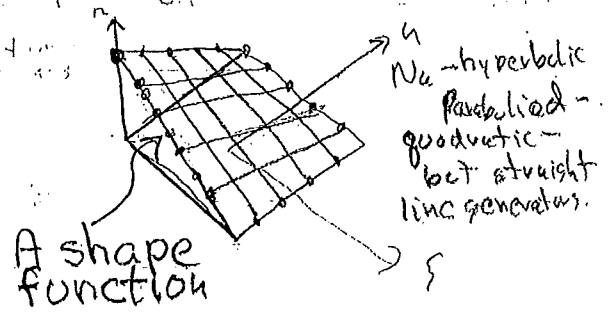 n
η
Nu - hyperbolic
Paraboliod -
quadratic -
but straight
line generators.
ξ
A shape
function